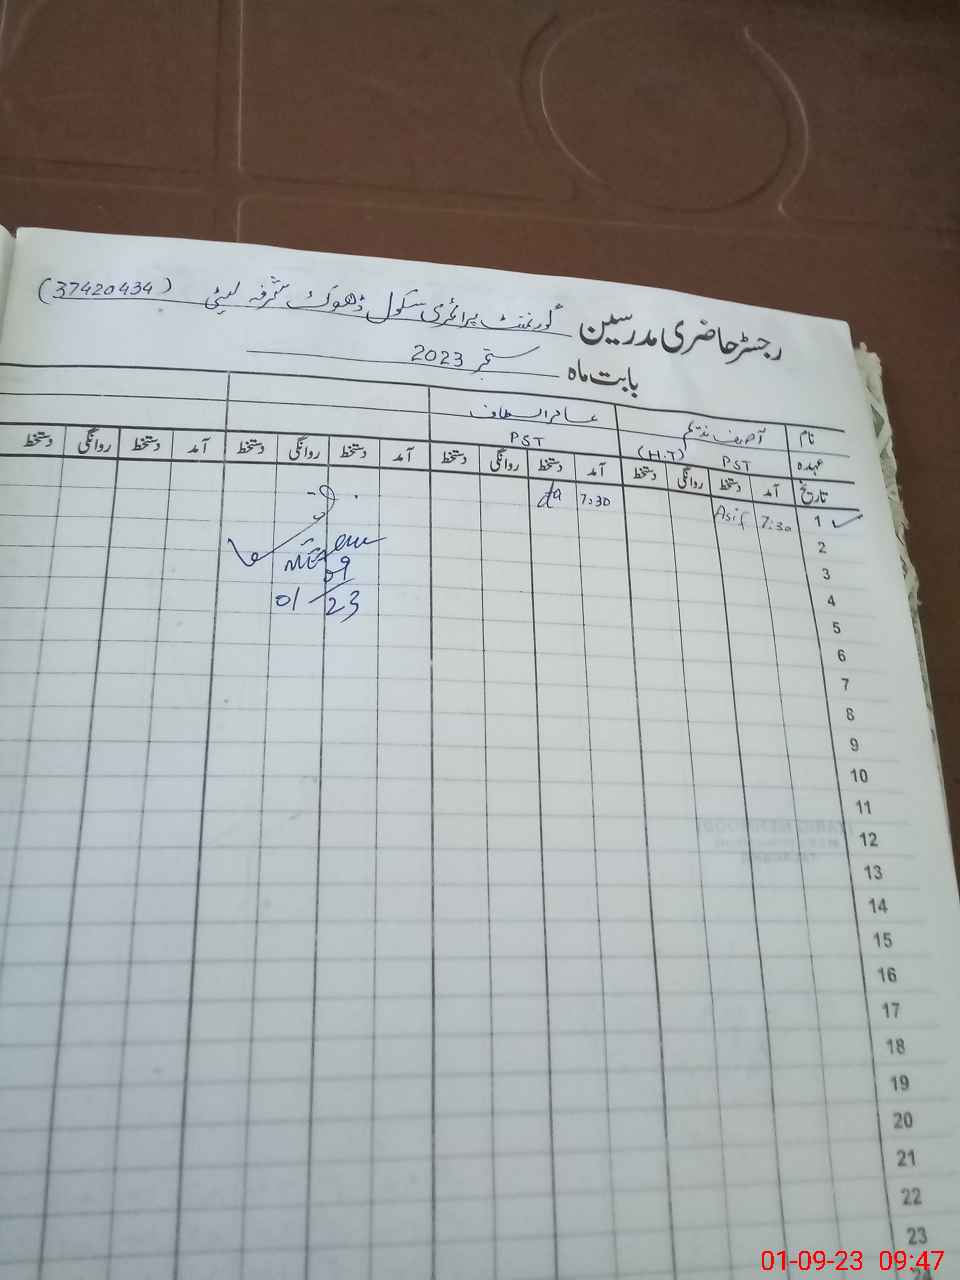 رجسٹر حاضری مدرسین گورنمنٹ پرائمری سکول ڈھوک شرفہ لیٹی (37420434)
بابت ماہ ستمبر 2023
نام آصف ندیم عامر الطاف
عہدہ PST (H.T) PST
تاریخ آمد دستخط روانگی دستخط آمد دستخط روانگی دستخط آمد دستخط روانگی دستخط آمد دستخط روانگی دستخط
1 7:30 Asif 7:30
2
3
4
5
6
7
8
9
10
11
12
13
14
15
16
17
18
19
20
21
22
23
01/09/23
01-09-23 09:47